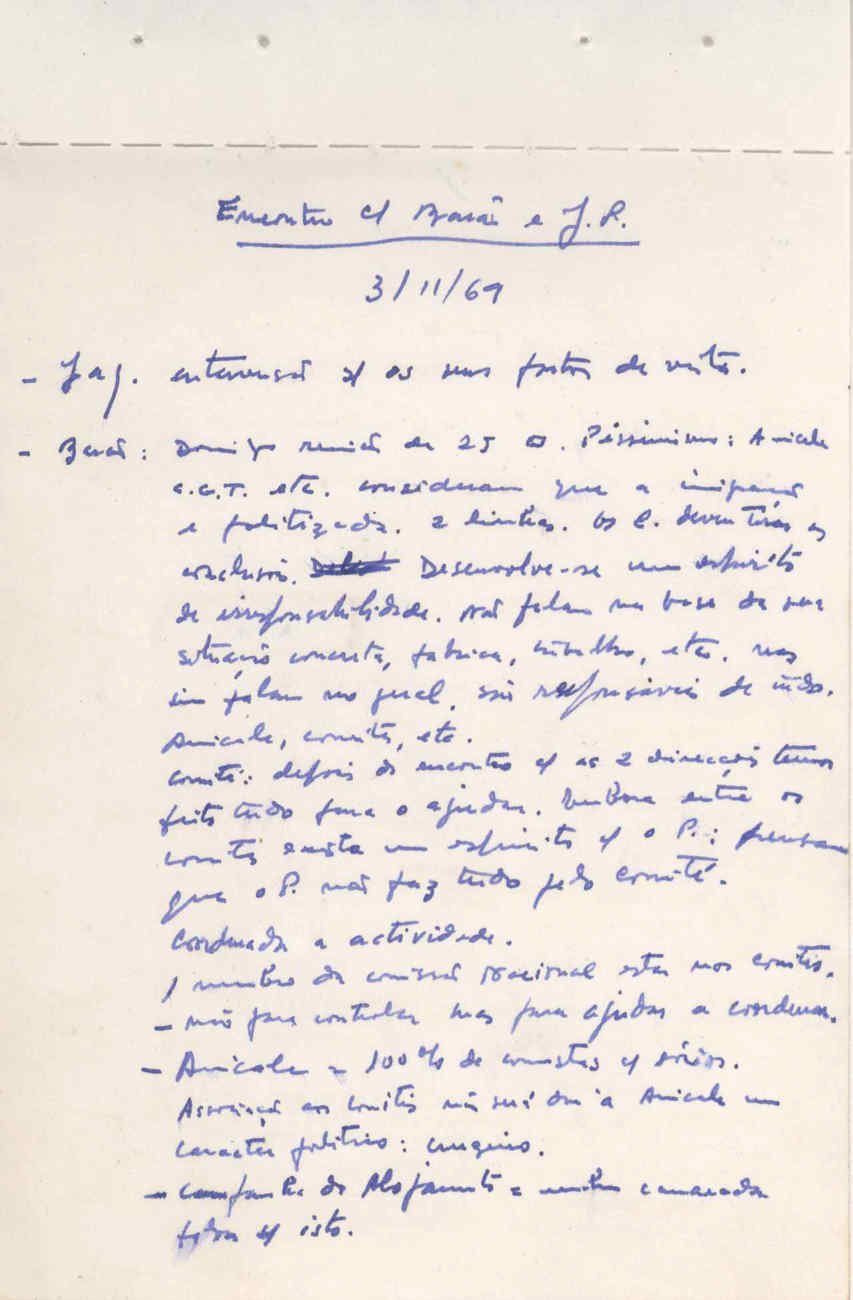 Encontro c/ Barão e J. P.
3/11/69
- Jaq. intervenção s/ os seus pontos de vista.
- Barão: Domingo reunião de 25 □. Pessimismo: Amicale
C.G.T. etc. consideram que a imigração
é politizada. 2 linhas. Os C. devem tirar as
conclusões. Desenvolve-se um espírito
de irresponsabilidade. Não falam na base da sua
situação concreta, fabrica, trabalho, etc. mas
sim falam no geral, são responsáveis de tudo.
Amicale, comités, etc.
Comité: depois do encontro c/ as 2 direcções temos
feito tudo para o ajudar. Embora entre os
comités exista um espírito c/ o P.: pensam
que o P. não faz tudo pelo comité.
Coordenada a actividade.
1 membro da comissão nacional está nos comités.
- não para controlar mas para ajudar a coordenar.
- Amicale = 100% de comunistas c/ sócios.
Associação aos comités não será dar à Amicale um
caracter político:
- Campanha do Alojamento = camarada
falou s/ isto.